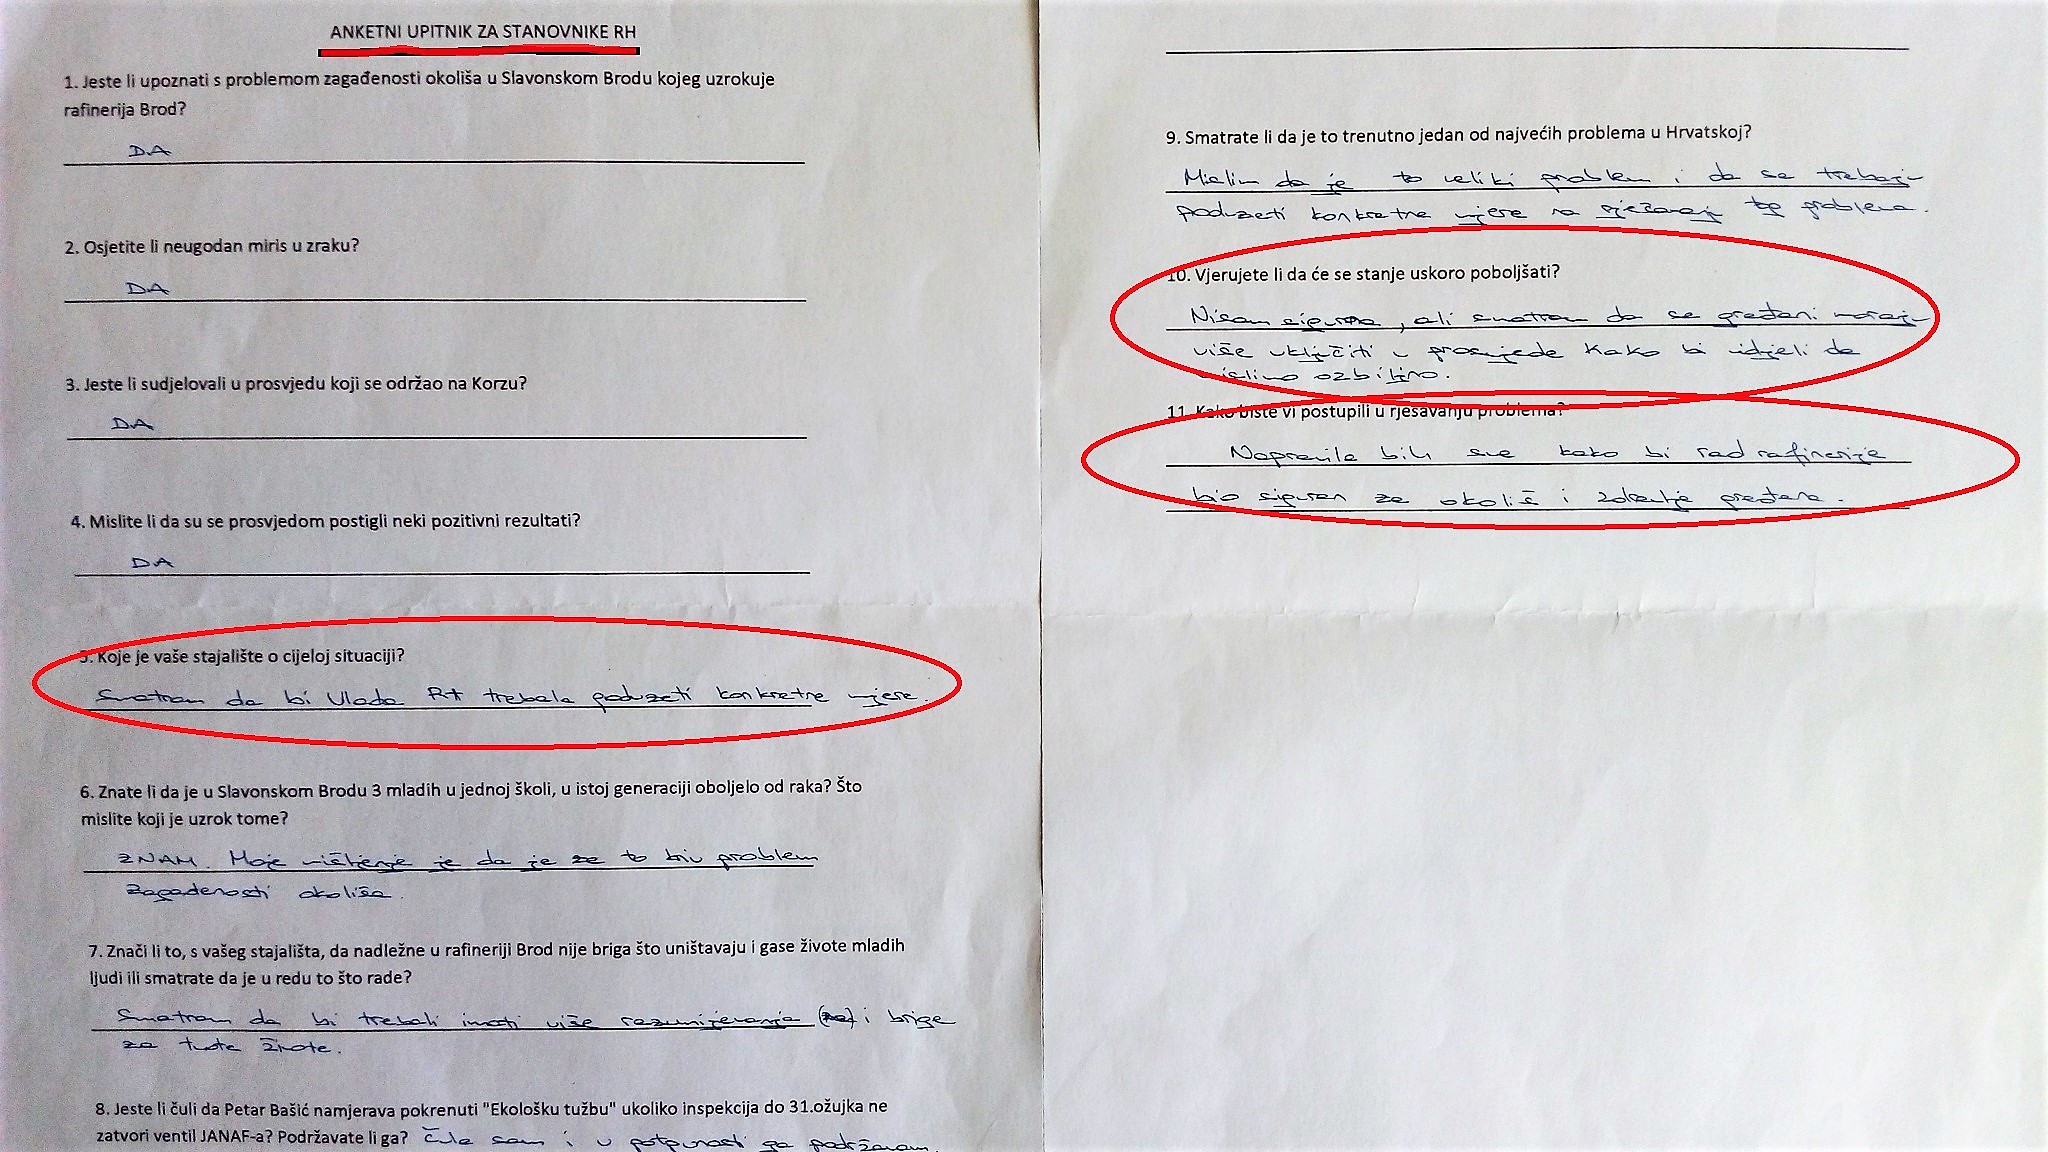 ANKETNI UPITNIK ZA STANOVNIKE RH
1. Jeste li upoznati s problemom zagađenosti okoliša u Slavonskom Brodu kojeg uzrokuje
rafinerija Brod?
DA
2. Osjetite li neugodan miris u zraku?
DA
3. Jeste li sudjelovali u prosvjedu koji se održao na Korzu?
DA
4. Mislite li da su se prosvjedom postigli neki pozitivni rezultati?
DA
5. Koje je vaše stajalište o cijeloj situaciji?
Smatram da bi Vlada RH trebala poduzeti konkretne mjere.
6. Znate li da je u Slavonskom Brodu 3 mladih u jednoj školi, u istoj generaciji oboljelo od raka? Što
mislite koji je uzrok tome?
ZNAM. Moje mišljenje je da je za to kriv problem
zagađenosti okoliša.
7. Znači li to, s vašeg stajališta, da nadležne u rafineriji Brod nije briga što uništavaju i gase živote mladih
ljudi ili smatrate da je u redu to što rade?
Smatram da bi trebali imati više razumijevanja i brige
za tuđe živote.
8. Jeste li čuli da Petar Bašić namjerava pokrenuti "Ekološku tužbu" ukoliko inspekcija do 31.ožujka ne
zatvori ventil JANAF-a? Podržavate li ga? Čula sam i u potpunosti ga podržavam.
9. Smatrate li da je to trenutno jedan od najvećih problema u Hrvatskoj?
Mislim da je to veliki problem i da se trebaju
poduzeti konkretne mjere na rješavanju tog problema.
10. Vjerujete li da će se stanje uskoro poboljšati?
Nisam sigurna, ali smatram da se građani moraju
više uključiti u prosvjede kako bi vidjeli da
mislimo ozbiljno.
11. Kako biste vi postupili u rješavanju problema?
Napravila bih sve kako bi rad rafinerije
bio siguran za okoliš i zdravlje građana.